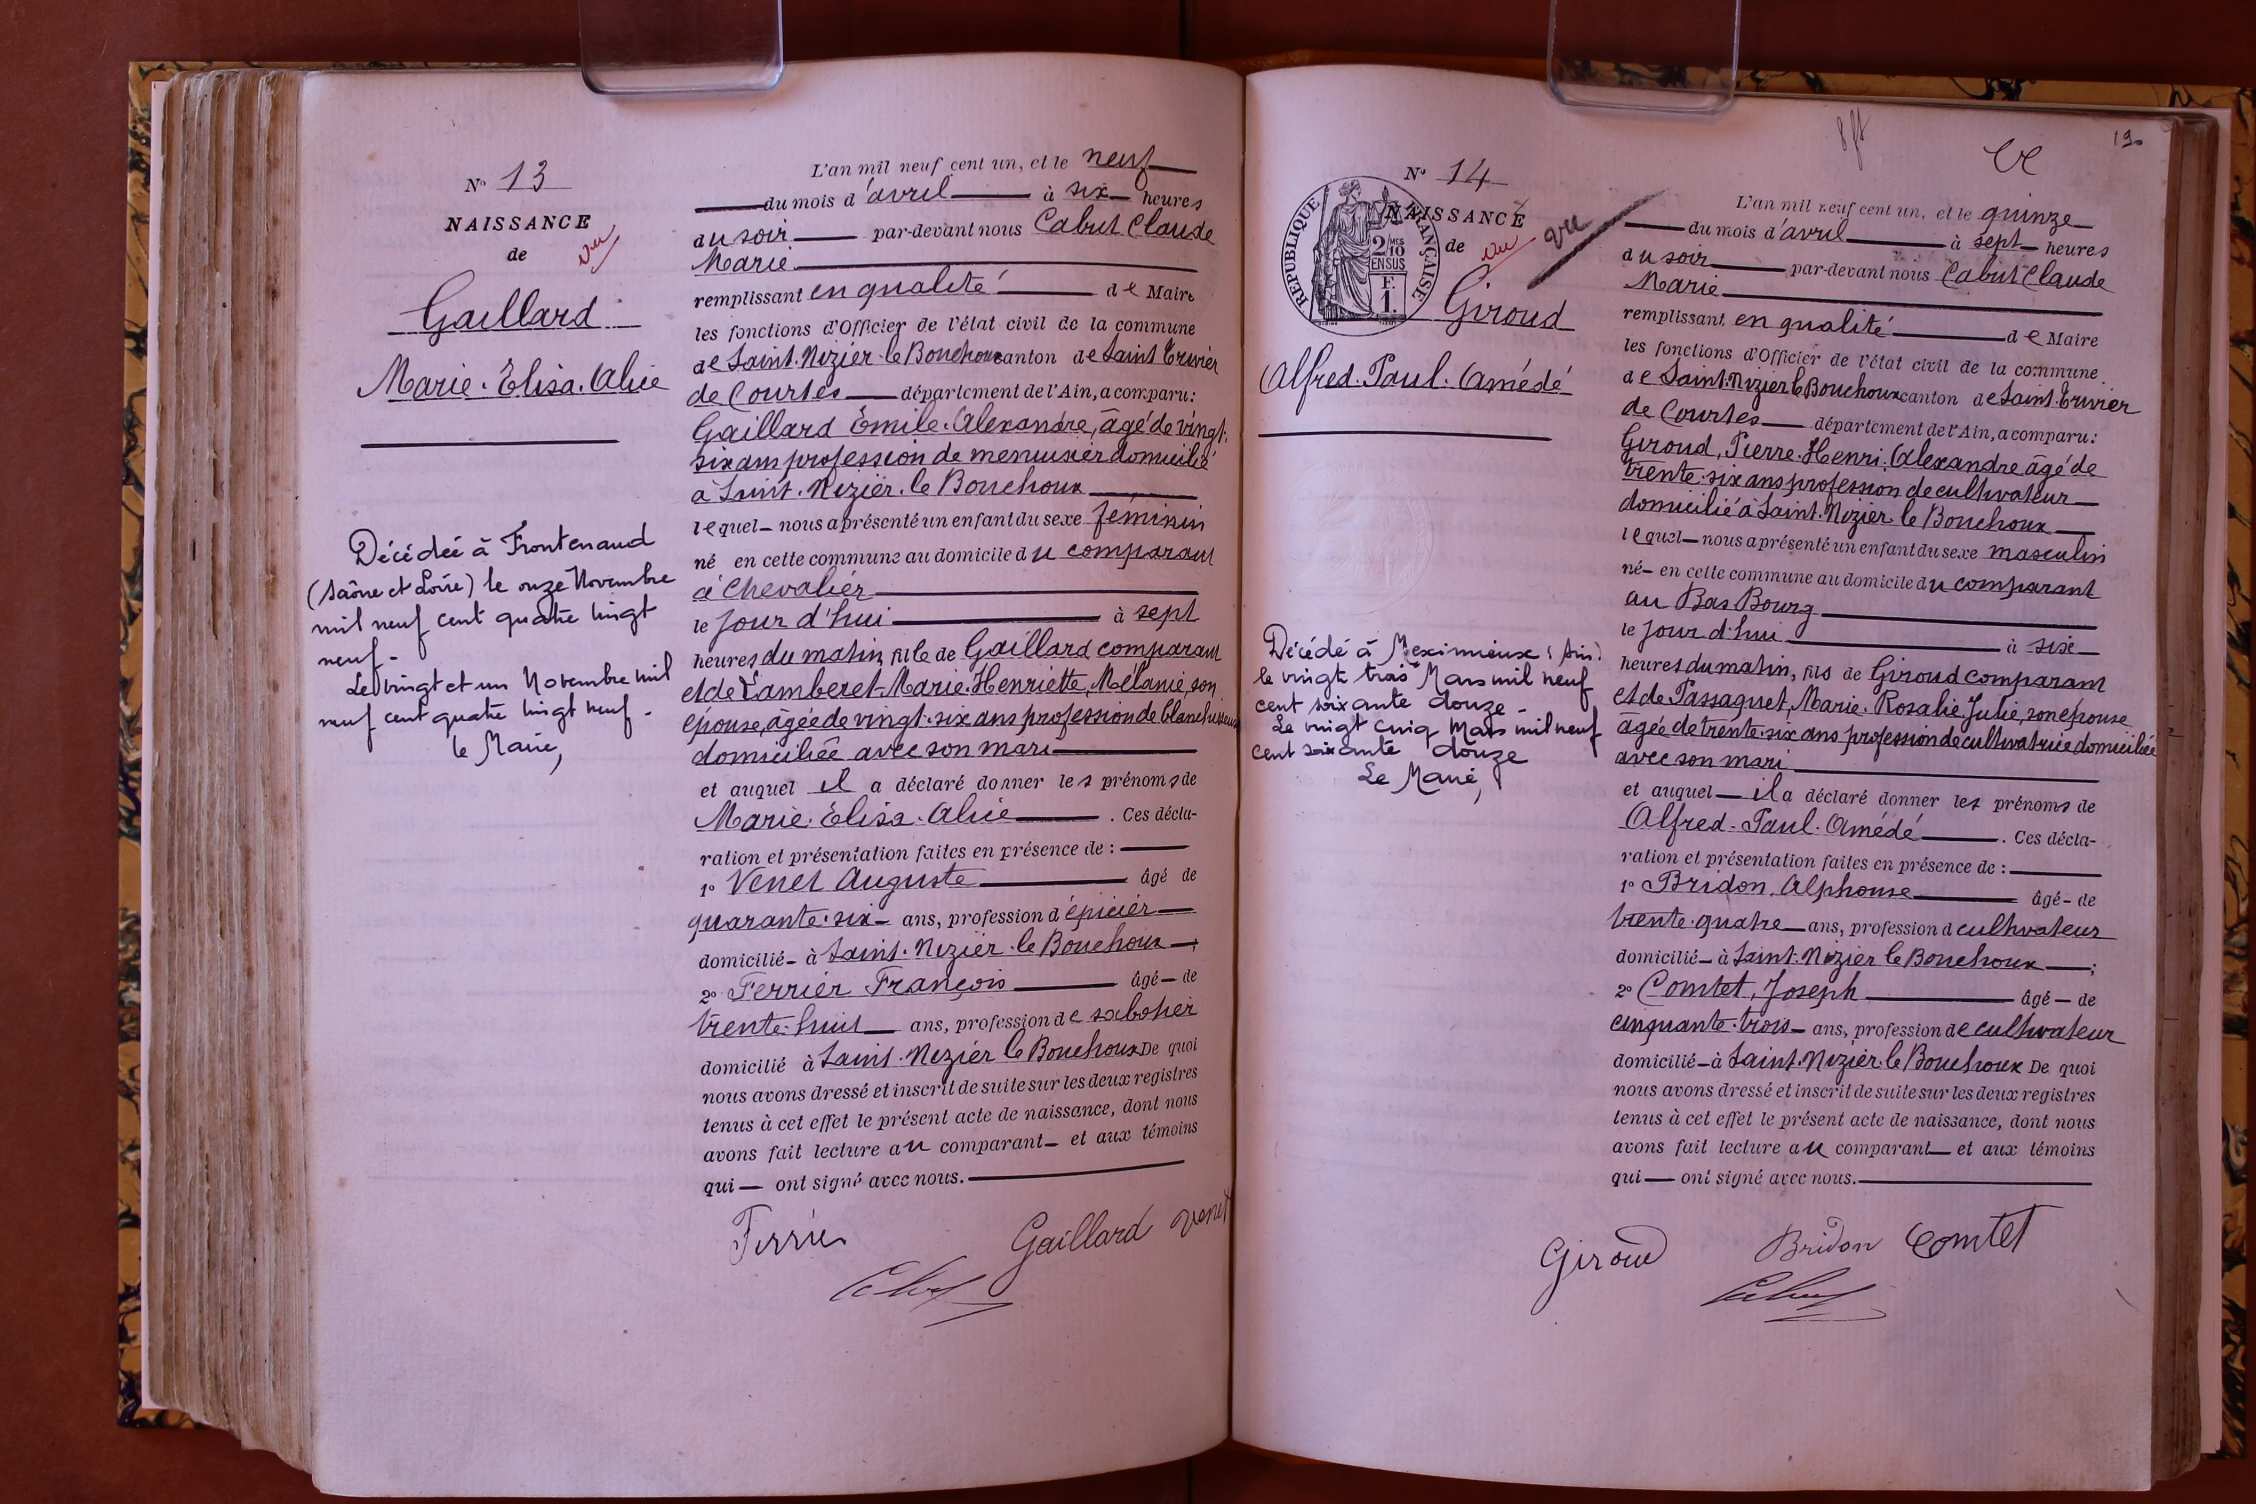 N° 13
NAISSANCE
de
vu
Gaillard
Marie. Élisa. Alice
Décédée à Frontenaud
(Saône et Loire) le onze Novembre
mil neuf cent quatre vingt
neuf.
Le vingt et un Novembre mil
neuf cent quatre vingt neuf.
le Maire,
L'an mil neuf cent un, et le neuf
du mois d'avril à six heures
du soir par-devant nous Cabut Claude
Marie
remplissant en qualité de Maire
les fonctions d'Officier de l'état civil de la commune
de Saint. Nizier. le Bouchoux canton de Saint Trivier
de Courtes département de l'Ain, a comparu:
Gaillard Émile. Alexandre, âgé de vingt.
six ans profession de menuisier domicilié
à Saint. Nizier. le Bouchoux
lequel nous a présenté un enfant du sexe féminin
né en cette commune au domicile du comparant
à Chevalier
le jour d'hui à sept
heures du matin, fille de Gaillard comparant
et de Lamberet Marie. Henriette, Mélanie, son
épouse, âgée de vingt. six ans profession de blanchisseuse
domiciliée avec son mari
et auquel il a déclaré donner les prénoms de
Marie. Élisa. Alice . Ces décla-
ration et présentation faites en présence de :
1° Venet Auguste âgé de
quarante. six ans, profession d'épicier
domicilié à Saint. Nizier. le Bouchoux ;
2° Ferrier François âgé de
trente. huit ans, profession de sabotier
domicilié à Saint. Nizier le Bouchoux De quoi
nous avons dressé et inscrit de suite sur les deux registres
tenus à cet effet le présent acte de naissance, dont nous
avons fait lecture au comparant et aux témoins
qui ont signé avec nous.
Ferrier
Gaillard
Venet
Cabut
19.
N° 14
RÉPUBLIQUE FRANÇAISE
2/10 MES
EN SUS
F.
1.
NAISSANCE
de
vu
vu
Giroud
Alfred. Paul. Amédé
Décédé à Meximieux (Ain)
le vingt trois Mars mil neuf
cent soixante douze.
Le vingt cinq Mars mil neuf
cent soixante douze
Le Maire,
L'an mil neuf cent un, et le quinze
du mois d'avril à sept heures
du soir par-devant nous Cabut Claude
Marie
remplissant en qualité de Maire
les fonctions d'Officier de l'état civil de la commune
de Saint. Nizier le Bouchoux canton de Saint. Trivier
de Courtes département de l'Ain, a comparu:
Giroud, Pierre. Henri. Alexandre âgé de
trente. six ans profession de cultivateur
domicilié à Saint. Nizier le Bouchoux
lequel nous a présenté un enfant du sexe masculin
né en cette commune au domicile du comparant
au Bas Bourg
le jour d'hui à six
heures du matin, fils de Giroud comparant
et de Passaquet, Marie. Rosalie Julie, son épouse
âgée de trente. six ans profession de cultivatrice domiciliée
avec son mari
et auquel il a déclaré donner les prénoms de
Alfred. Paul. Amédé . Ces décla-
ration et présentation faites en présence de :
1° Bridon, Alphonse âgé de
trente. quatre ans, profession de cultivateur
domicilié à Saint. Nizier le Bouchoux ;
2° Comtet, Joseph âgé de
cinquante. trois ans, profession de cultivateur
domicilié à Saint. Nizier. le Bouchoux De quoi
nous avons dressé et inscrit de suite sur les deux registres
tenus à cet effet le présent acte de naissance, dont nous
avons fait lecture au comparant et aux témoins
qui ont signé avec nous.
Giroud
Bridon
Comtet
Cabut